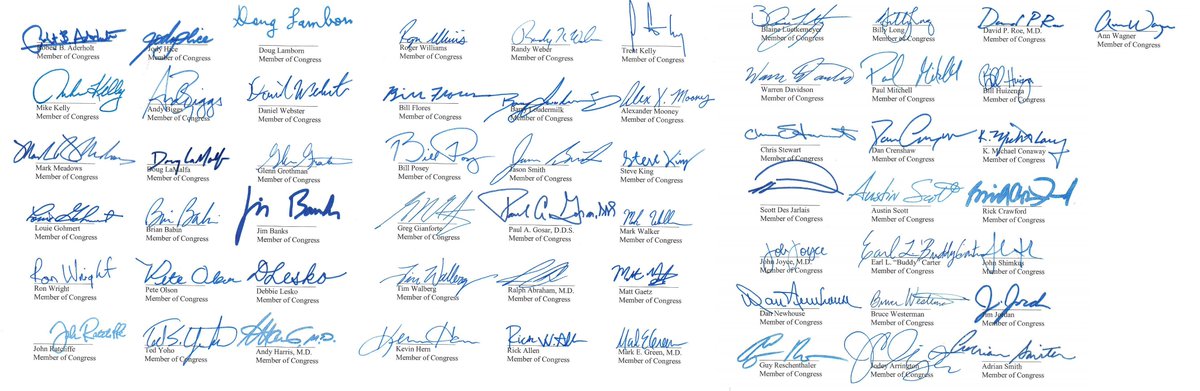 Doug Lamborn
Robert B. Aderholt Jody Hice Doug Lamborn
Member of Congress Member of Congress Member of Congress
Mike Kelly Andy Biggs Daniel Webster
Mike Kelly Andy Biggs Daniel Webster
Member of Congress Member of Congress Member of Congress
Doug LaMalfa
Mark Meadows Doug LaMalfa Glenn Grothman
Member of Congress Member of Congress Member of Congress
Louie Gohmert Brian Babin Jim Banks
Louie Gohmert Brian Babin Jim Banks
Member of Congress Member of Congress Member of Congress
Ron Wright Pete Olson D Lesko
Ron Wright Pete Olson Debbie Lesko
Member of Congress Member of Congress Member of Congress
John Ratcliffe
John Ratcliffe Ted Yoho Andy Harris, M.D.
Member of Congress Member of Congress Member of Congress
Roger Williams Randy Weber Trent Kelly
Member of Congress Member of Congress Member of Congress
Bill Flores Alex X. Mooney
Bill Flores Barry Loudermilk Alexander Mooney
Member of Congress Member of Congress Member of Congress
Bill Posey Jason Smith Steve King
Bill Posey Jason Smith Steve King
Member of Congress Member of Congress Member of Congress
Paul A. Gosar, DDS
Greg Gianforte Paul A. Gosar, D.D.S. Mark Walker
Member of Congress Member of Congress Member of Congress
Tim Walberg
Tim Walberg Ralph Abraham, M.D. Matt Gaetz
Member of Congress Member of Congress Member of Congress
Kevin Hern Rick W Allen Mark E Green
Kevin Hern Rick Allen Mark E. Green, M.D.
Member of Congress Member of Congress Member of Congress
David P Roe Ann Wagner
Blaine Luetkemeyer Billy Long David P. Roe, M.D. Ann Wagner
Member of Congress Member of Congress Member of Congress Member of Congress
Warren Davidson Paul Mitchell Bill Huizenga
Warren Davidson Paul Mitchell Bill Huizenga
Member of Congress Member of Congress Member of Congress
Chris Stewart Dan Crenshaw K. Michael Conaway
Member of Congress Member of Congress Member of Congress
Austin Scott
Scott Des Jarlais Austin Scott Rick Crawford
Member of Congress Member of Congress Member of Congress
John Joyce Earl L "Buddy" Carter
John Joyce, M.D. Earl L. "Buddy" Carter John Shimkus
Member of Congress Member of Congress Member of Congress
Dan Newhouse Bruce Westerman
Dan Newhouse Bruce Westerman Jim Jordan
Member of Congress Member of Congress Member of Congress
Adrian Smith
Guy Reschenthaler Jodey Arrington Adrian Smith
Member of Congress Member of Congress Member of Congress